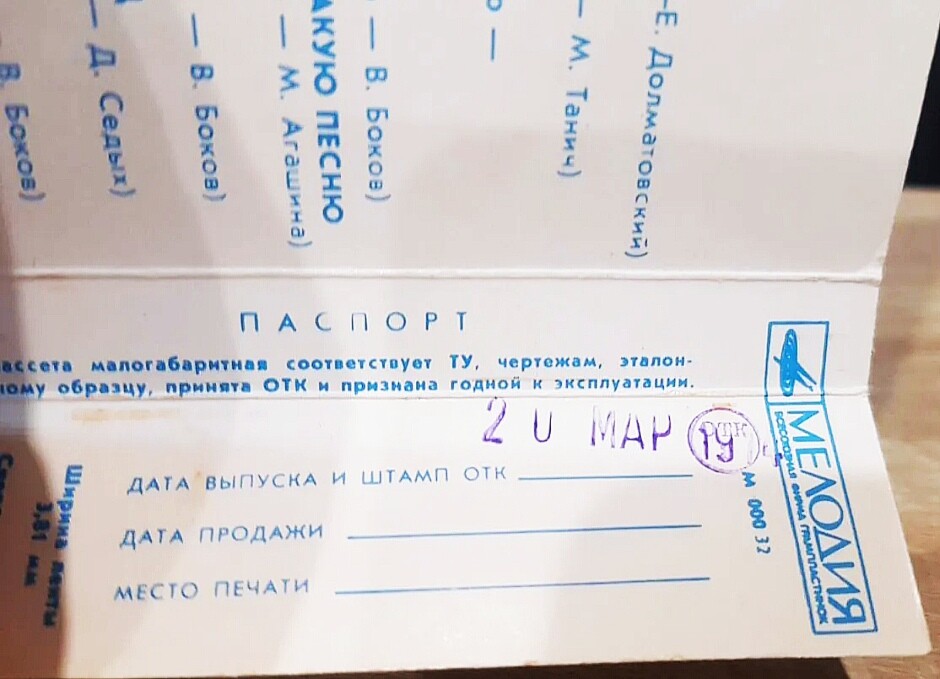 В. Боков)
— Д. Седых)
— В. Боков)
— М. Агашина)
АКУЮ ПЕСНЮ
— В. Боков)
о —
— М. Танич)
-Е. Долматовский)
ПАСПОРТ
ассета малогабаритная соответствует ТУ, чертежам, эталон-
ному образцу, принята ОТК и признана годной к эксплуатации.
МАР
ОТК
ДАТА ВЫПУСКА И ШТАМП ОТК
ДАТА ПРОДАЖИ
МЕСТО ПЕЧАТИ
Ширина ленты
3,81 мм
МЕЛОДИЯ
ВСЕСОЮЗНАЯ ФИРМА ГРАМПЛАСТИНОК
М 000 32